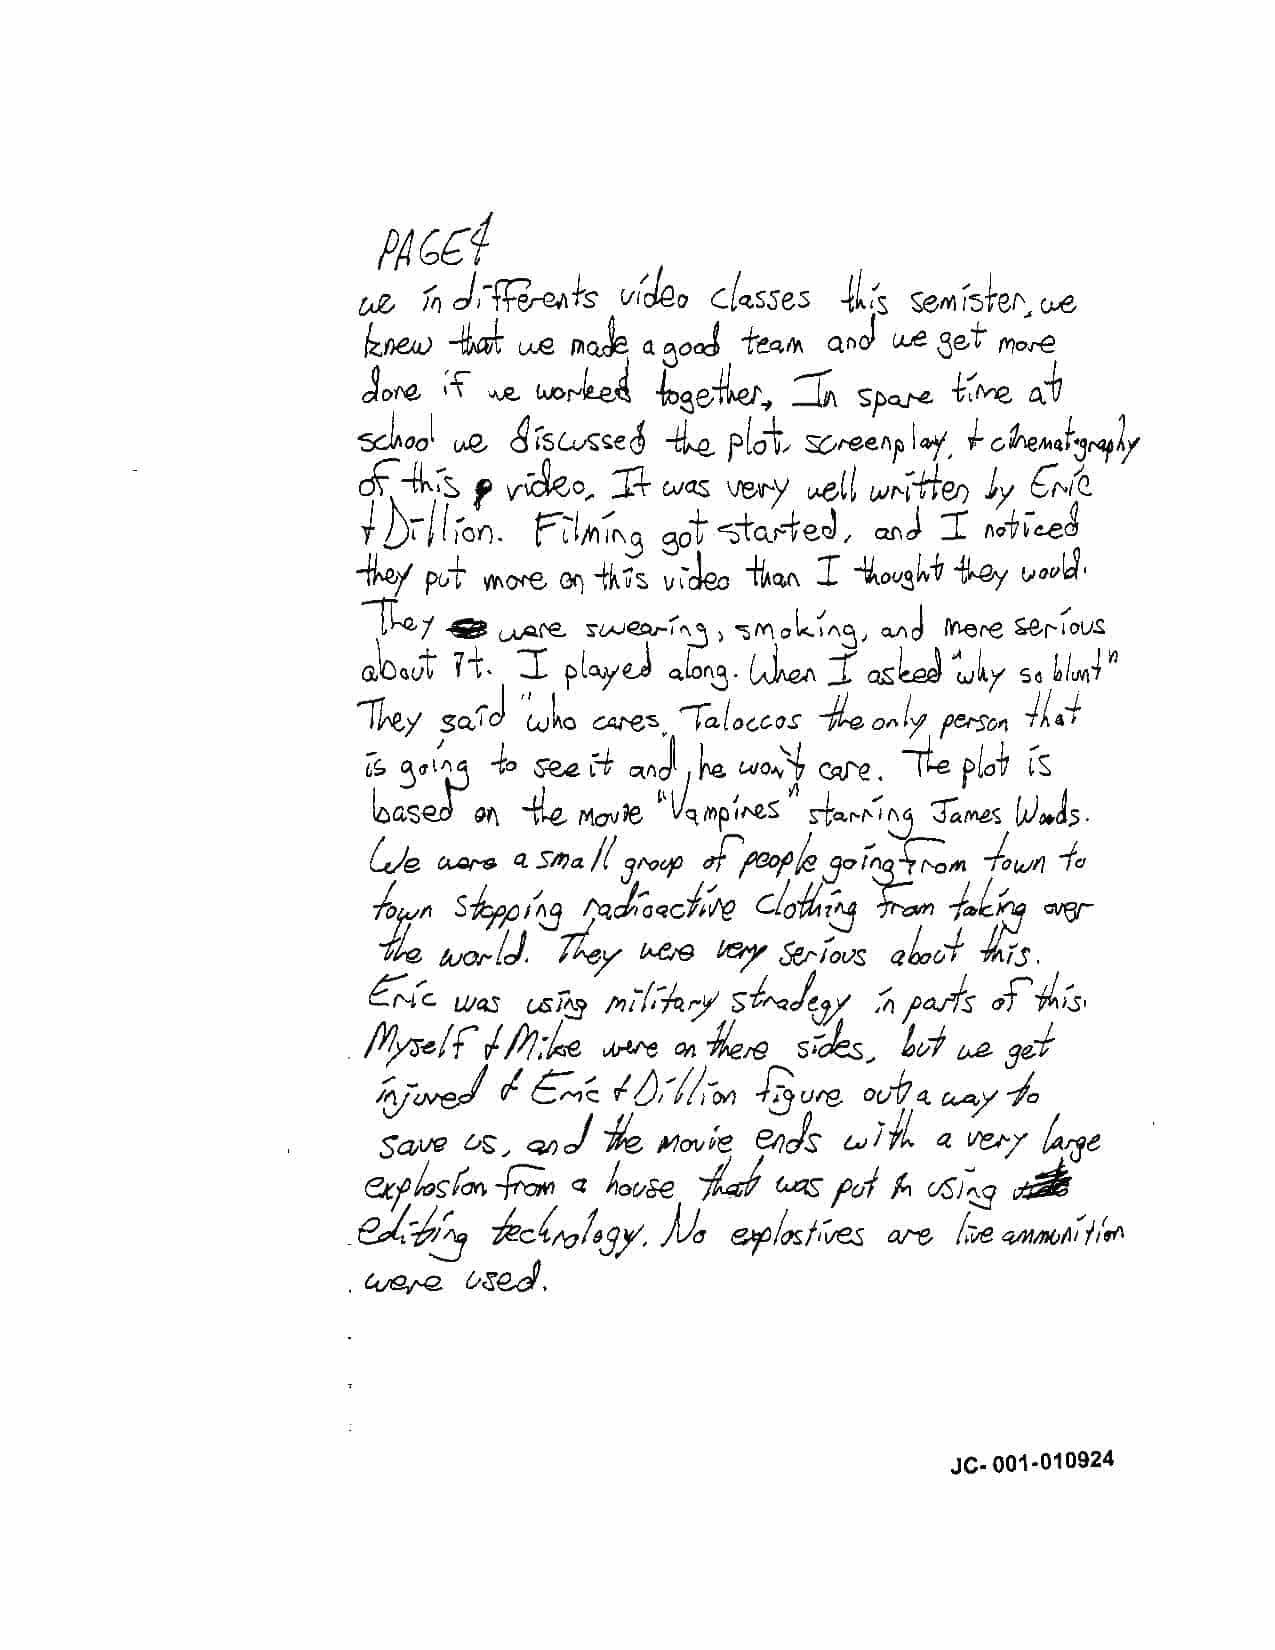 PAGE 4
we in differents video classes this semister, we
knew that we made a good team and we get more
done if we worked together, In spare time at
school we discussed the plot, screenplay, + cinematography
of this video. It was very well written by Eric
+ Dillion. Filming got started, and I noticed
they put more on this video than I thought they would.
They were swearing, smoking, and more serious
about it. I played along. When I asked "why so blunt"
They said "who cares, Taloccos the only person that
is going to see it and he won't care. The plot is
based on the movie "Vampires" starring James Woods.
We were a small group of people going from town to
town stopping radioactive clothing from taking over
the world. They were very serious about this.
Eric was using military stradegy in parts of this.
Myself + Mike were on there sides, but we get
injured + Eric + Dillion figure out a way to
save us, and the movie ends with a very large
explosion from a house that was put in using
editing technology. No explostives are live ammunition
were used.
JC-001-010924